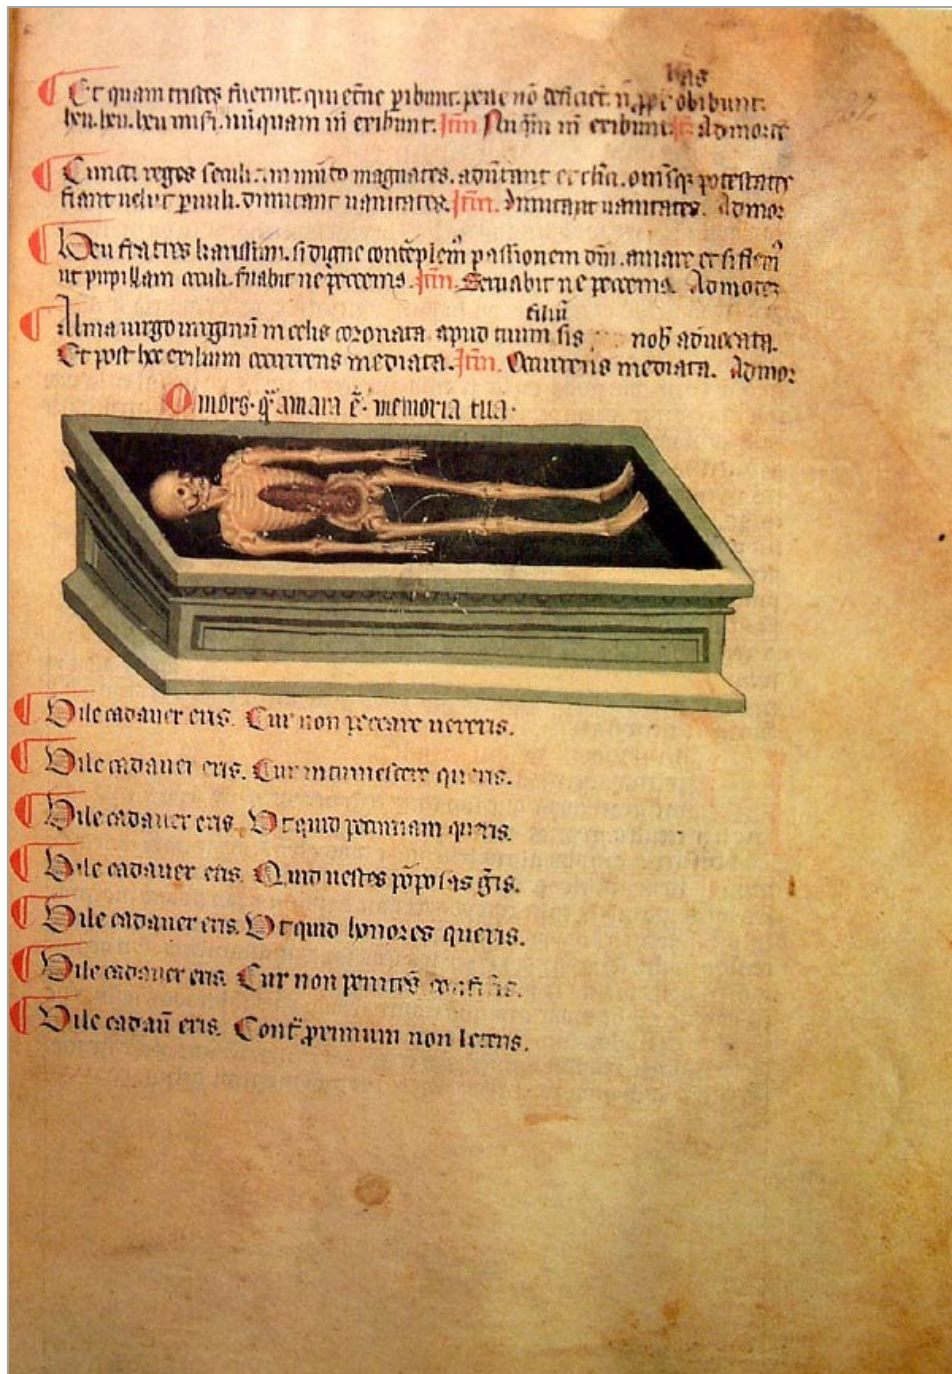 Et quam tristes fuerint. qui etñe ꝑibunt. pene nõ deficiet. ñ ꝓpꝑ has obibunt.
heu. heu. heu miſi. nũquam iñ exibunt. Itm̃ Nũq̃m iñ exibunt. Ad morte
Cuncti reges seculi. in mũdo magnates. aduẽtant et clĩci. om̃isq; poteſtates
fiant velut ꝑuuli. dimitant uanitates. Itm̃. dimitant uanitates. Ad mor
Heu fratres kariſſimi. si digne contẽplem᷒ paſſionem dñi. amare et si flem᷒
ut pupillam occuli. ſeruabit ne peccemus. Itm̃. Seruabit ne peccemus. Ad morte
Alma uirgo uirginũ in celis coronata. apud tuum filiũ sis nob̃ aduocata.
Et post hoc exilium occurrens mediata. Itm̃. Occurrens mediata. Ad mor
O mors. q̃ amara ẽ. memoria tua.
Vile cadauer eris. Cur non peccare uereris.
Vile cadauer eris. Cur intumescere queris.
Vile cadauer eris. Vt quid pecuniam queris.
Vile cadauer eris. Quid uestes põpoſas g̃is.
Vile cadauer eris. Vt quid honores queris.
Vile cadauer eris. Cur non penitẽs confiteris.
Vile cadaũ eris. Cont̃ proximum non leteris.